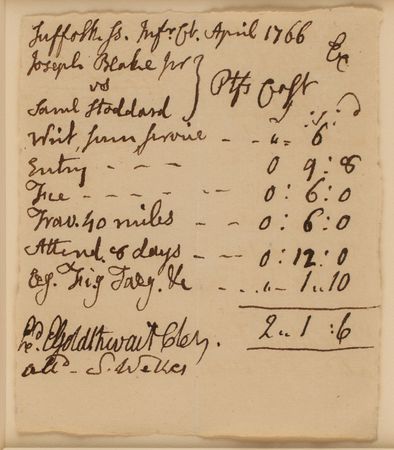 Suffolk Ss. Infr Ct. April 1766
Joseph Blake Jur } Ex
vs } Ptfs Cost
Saml Stoddard
Writ, Sum service - - " " 6
Entry - - - 0 9 : 8
Fee - - - - 0 : 6 : 0
Trav. 40 miles - - 0 : 6 : 0
Attend. 8 days - - 0 : 12 : 0
Fig Taxg. &c - - " " 1 " 10
2 " 1 : 6
Ezl. Goldthwait Cler.
attd - S. Wekes